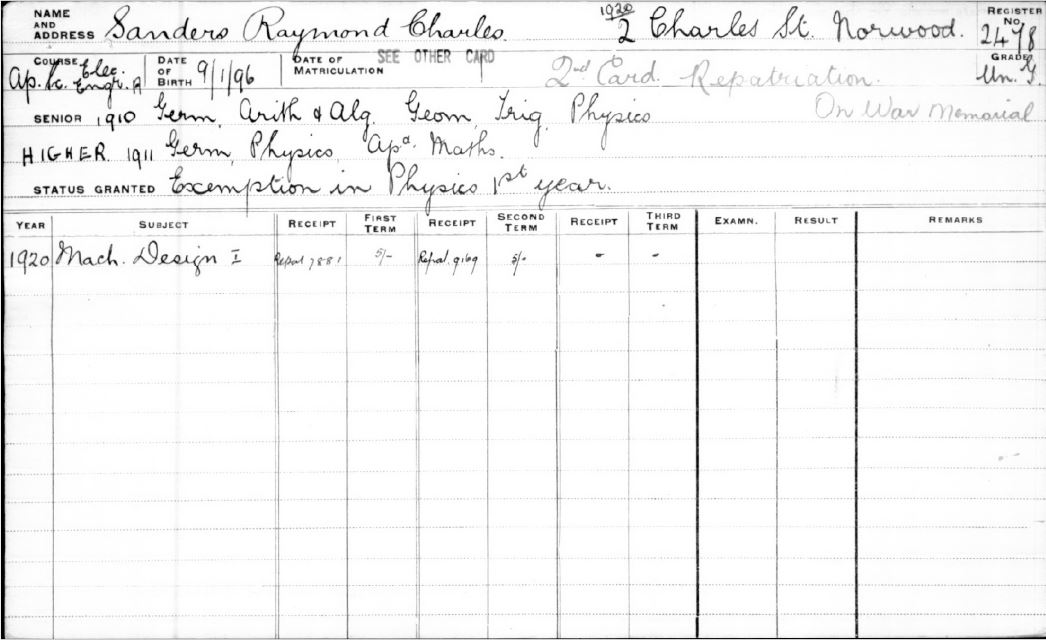 NAME AND ADDRESS Sanders Raymond Charles. 1920 2 Charles St. Norwood. REGISTER No. 2478
COURSE Ap. Sc. Elec. Engr. A DATE OF BIRTH 9/1/96 DATE OF MATRICULATION SEE OTHER CARD 2nd Card. Repatriation. GRADE Un. G.
SENIOR 1910 Germ, Arith & Alg, Geom, Trig, Physics On War Memorial
HIGHER 1911 Germ, Physics, Apd. Maths.
STATUS GRANTED Exemption in Physics 1st year.
YEAR SUBJECT RECEIPT FIRST TERM RECEIPT SECOND TERM RECEIPT THIRD TERM EXAMN. RESULT REMARKS
1920 Mach. Design I Repat 7881 5/- Repat. 9169 5/- - -